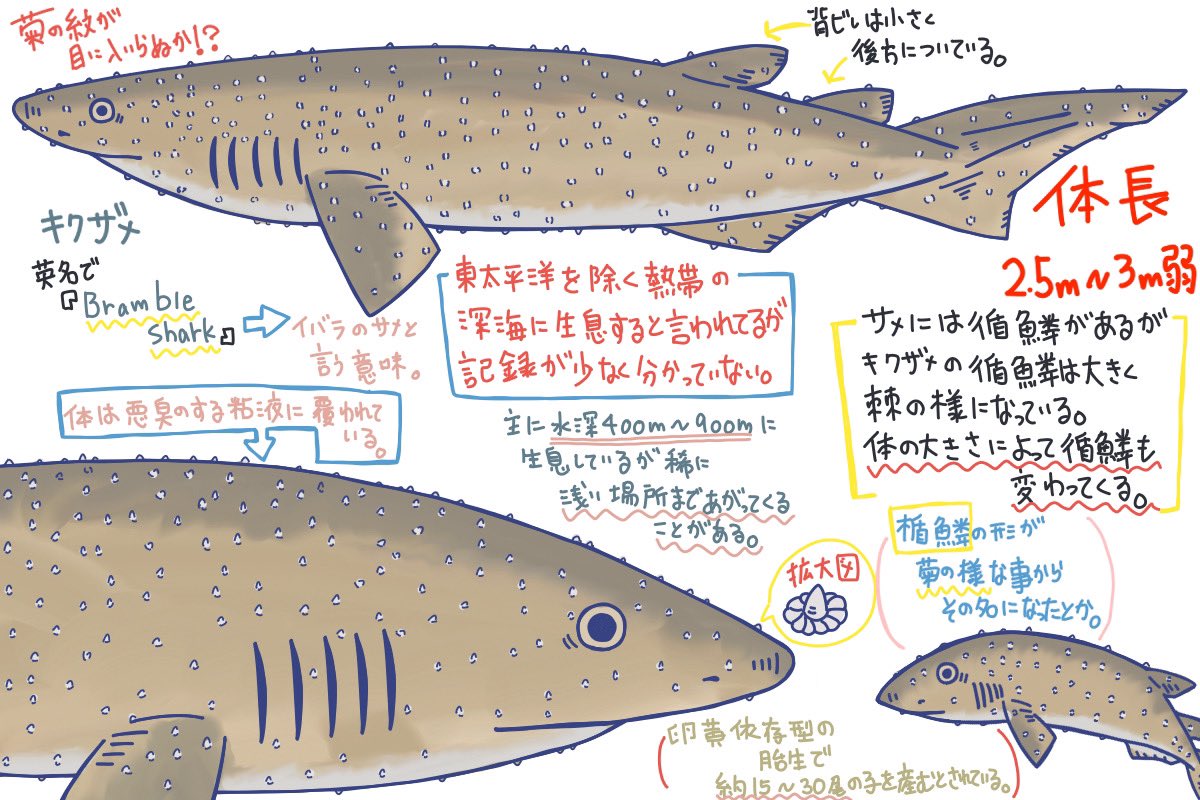 菊の紋が
目に入いらぬか!?
背ビレは小さく
後ろについている。
体長
2.5m~3m弱
キクザメ
英名で
『Bramble
shark』
イバラのサメと
言う意味。
東太平洋を除く熱帯の
深海に生息すると言われてるが
記録が少なく分かっていない。
サメには循鱗があるが
キクザメの循鱗は大きく
棘の様になっている。
体の大きさによって循鱗も
変わってくる。
体は悪臭のする粘液に覆われて
いる。
主に水深400m~900mに
生息しているが稀に
浅い場所まであがってくる
ことがある。
楯鱗の形が
菊の様な事から
その名になったとか。
拡大図
卵黄依存型の
胎生で
約15~30尾の子を産むとされている。